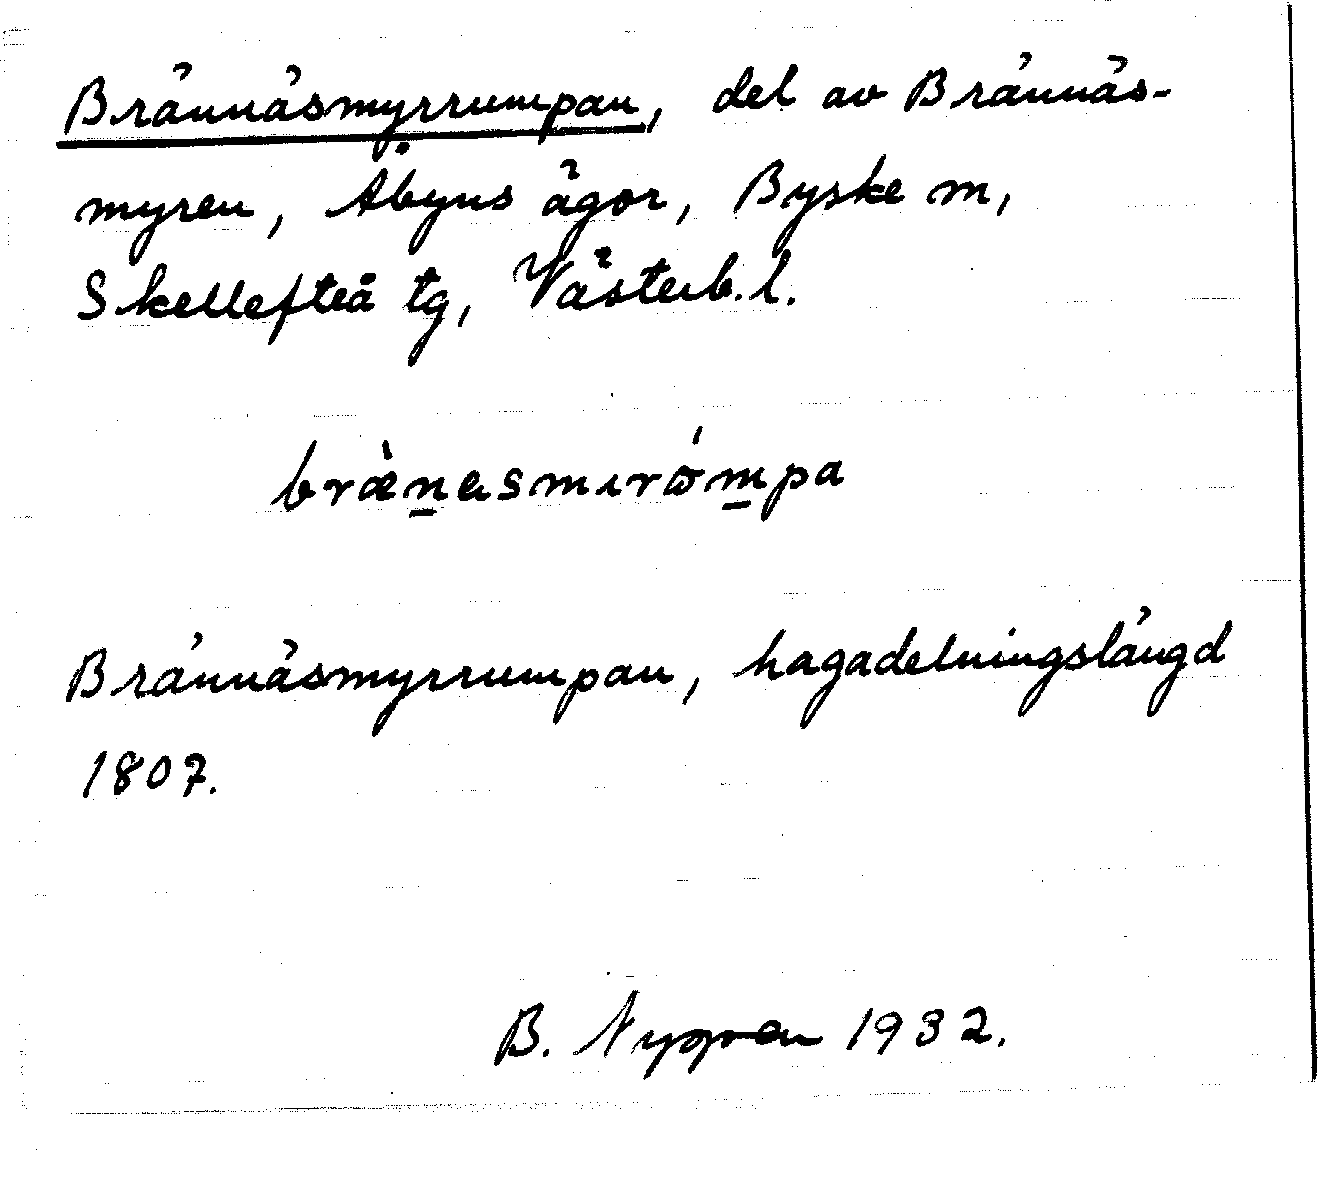 Brännäsmyrrumpan, del av Brännäs-
myren, Åbyns ägor, Byske m,
Skellefteå tg, Västerb. l.
bræ̀n̲asmırǿm̲pa
Brännäsmyrrumpan, hagadelningslängd
1807.
B. Nygren 1932.